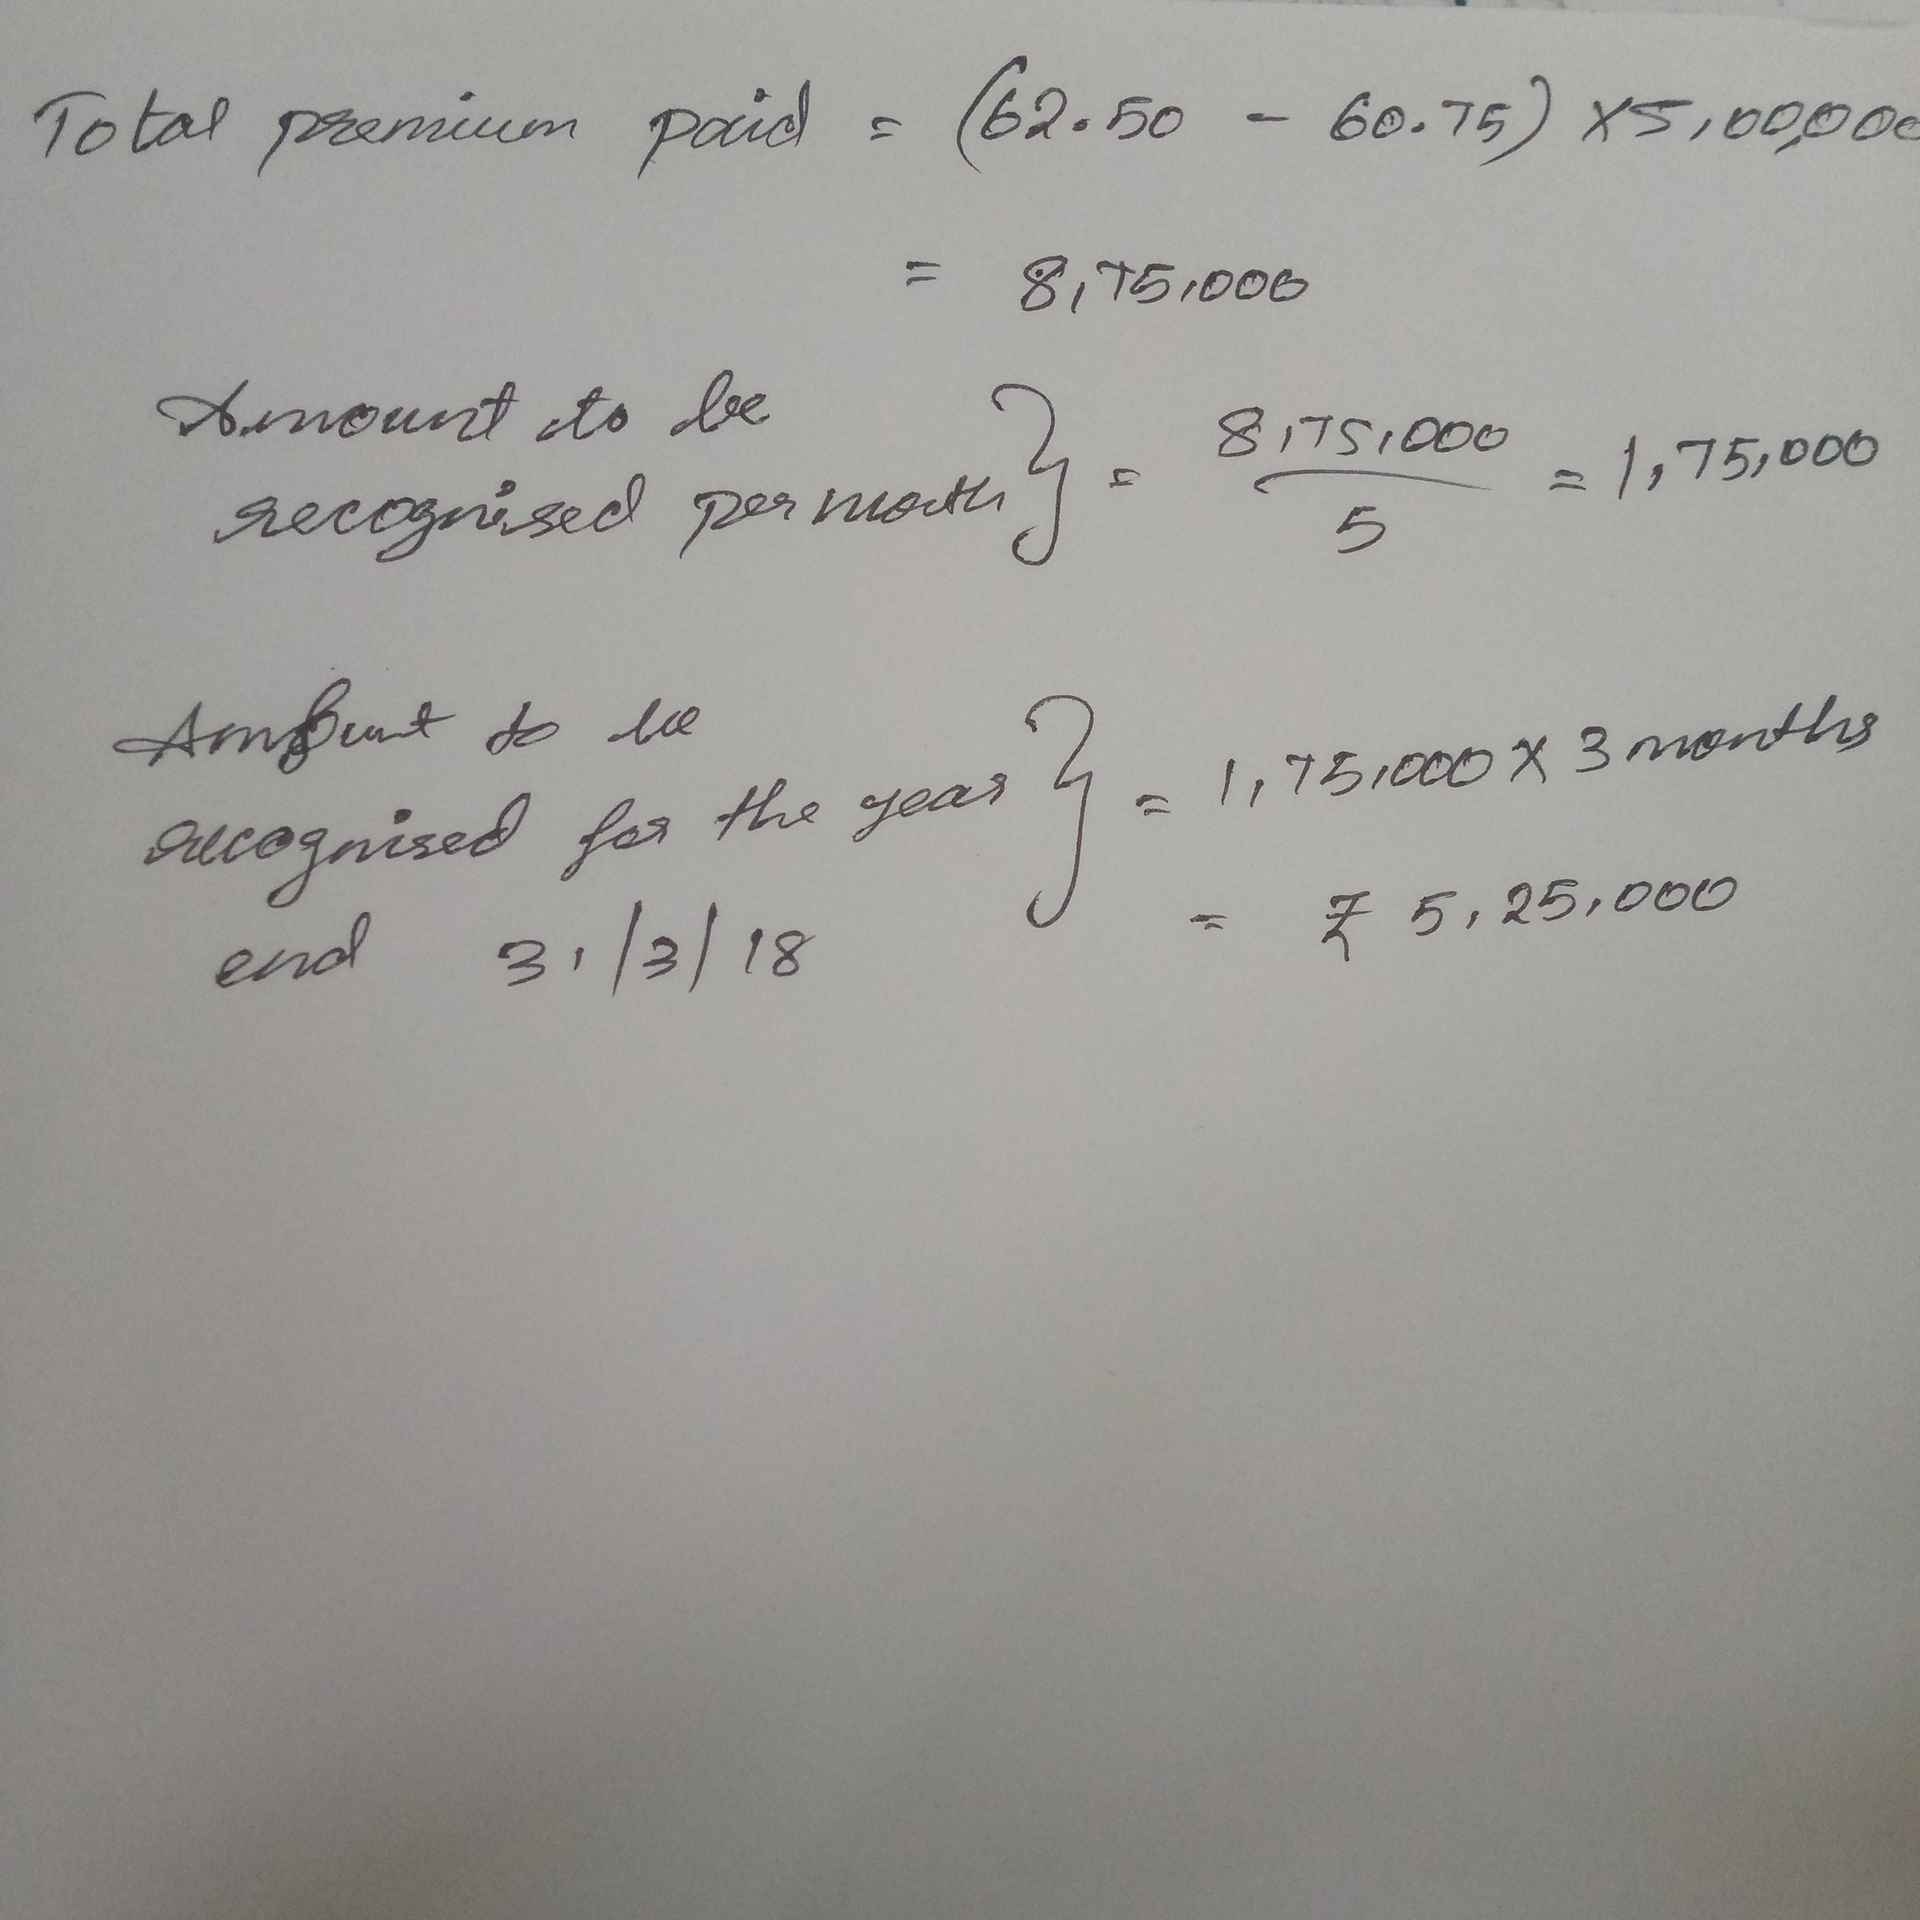 Total premium paid = (62.50 - 60.75) x5,00,000
= 8,75,000
Amount to be
recognised per month } = 8,75,000 / 5 = 1,75,000
Amount to be
recognised for the year } = 1,75,000 x 3 months
end 31/3/18 = ₹ 5,25,000